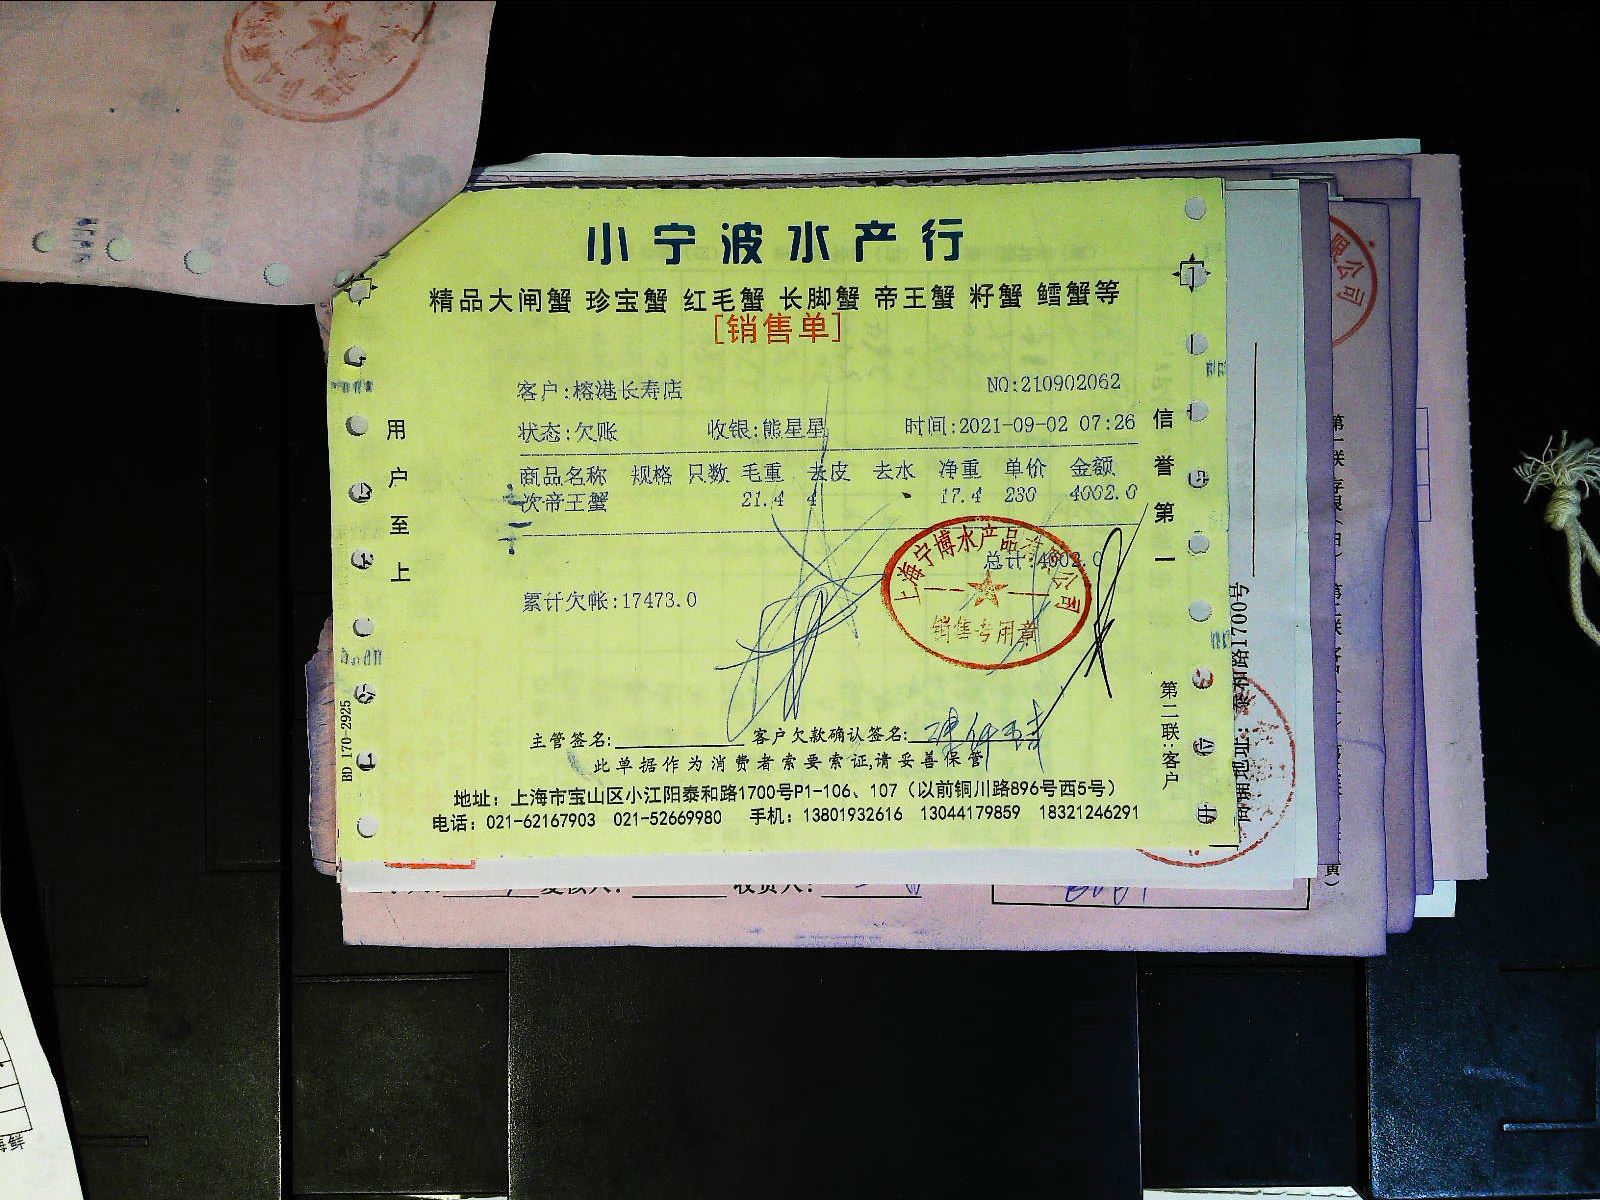 小宁波水产行
精品大闸蟹 珍宝蟹 红毛蟹 长脚蟹 帝王蟹 籽蟹 鳕蟹等
[销售单]
客户:榕港长寿店 NO:210902062
状态:欠账 收银:熊星星 时间:2021-09-02 07:26
商品名称 规格 只数 毛重 去皮 去水 净重 单价 金额
次帝王蟹 21.4 4 17.4 230 4002.0
总计:4002.0
累计欠帐:17473.0
上海宁博水产品有限公司
销售专用章
主管签名: 客户欠款确认签名:
此单据作为消费者索要索证,请妥善保管
地址：上海市宝山区小江阳泰和路1700号P1-106、107（以前铜川路896号西5号）
电话：021-62167903 021-52669980 手机：13801932616 13044179859 18321246291
用户至上
信誉第一
第二联:客户
BD 170-2925
限公司
路1700号
收货人：